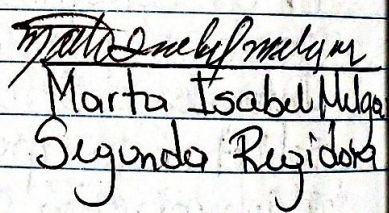 Marta Isabel Melgar
Marta Isabel Melga
Segunda Regidora